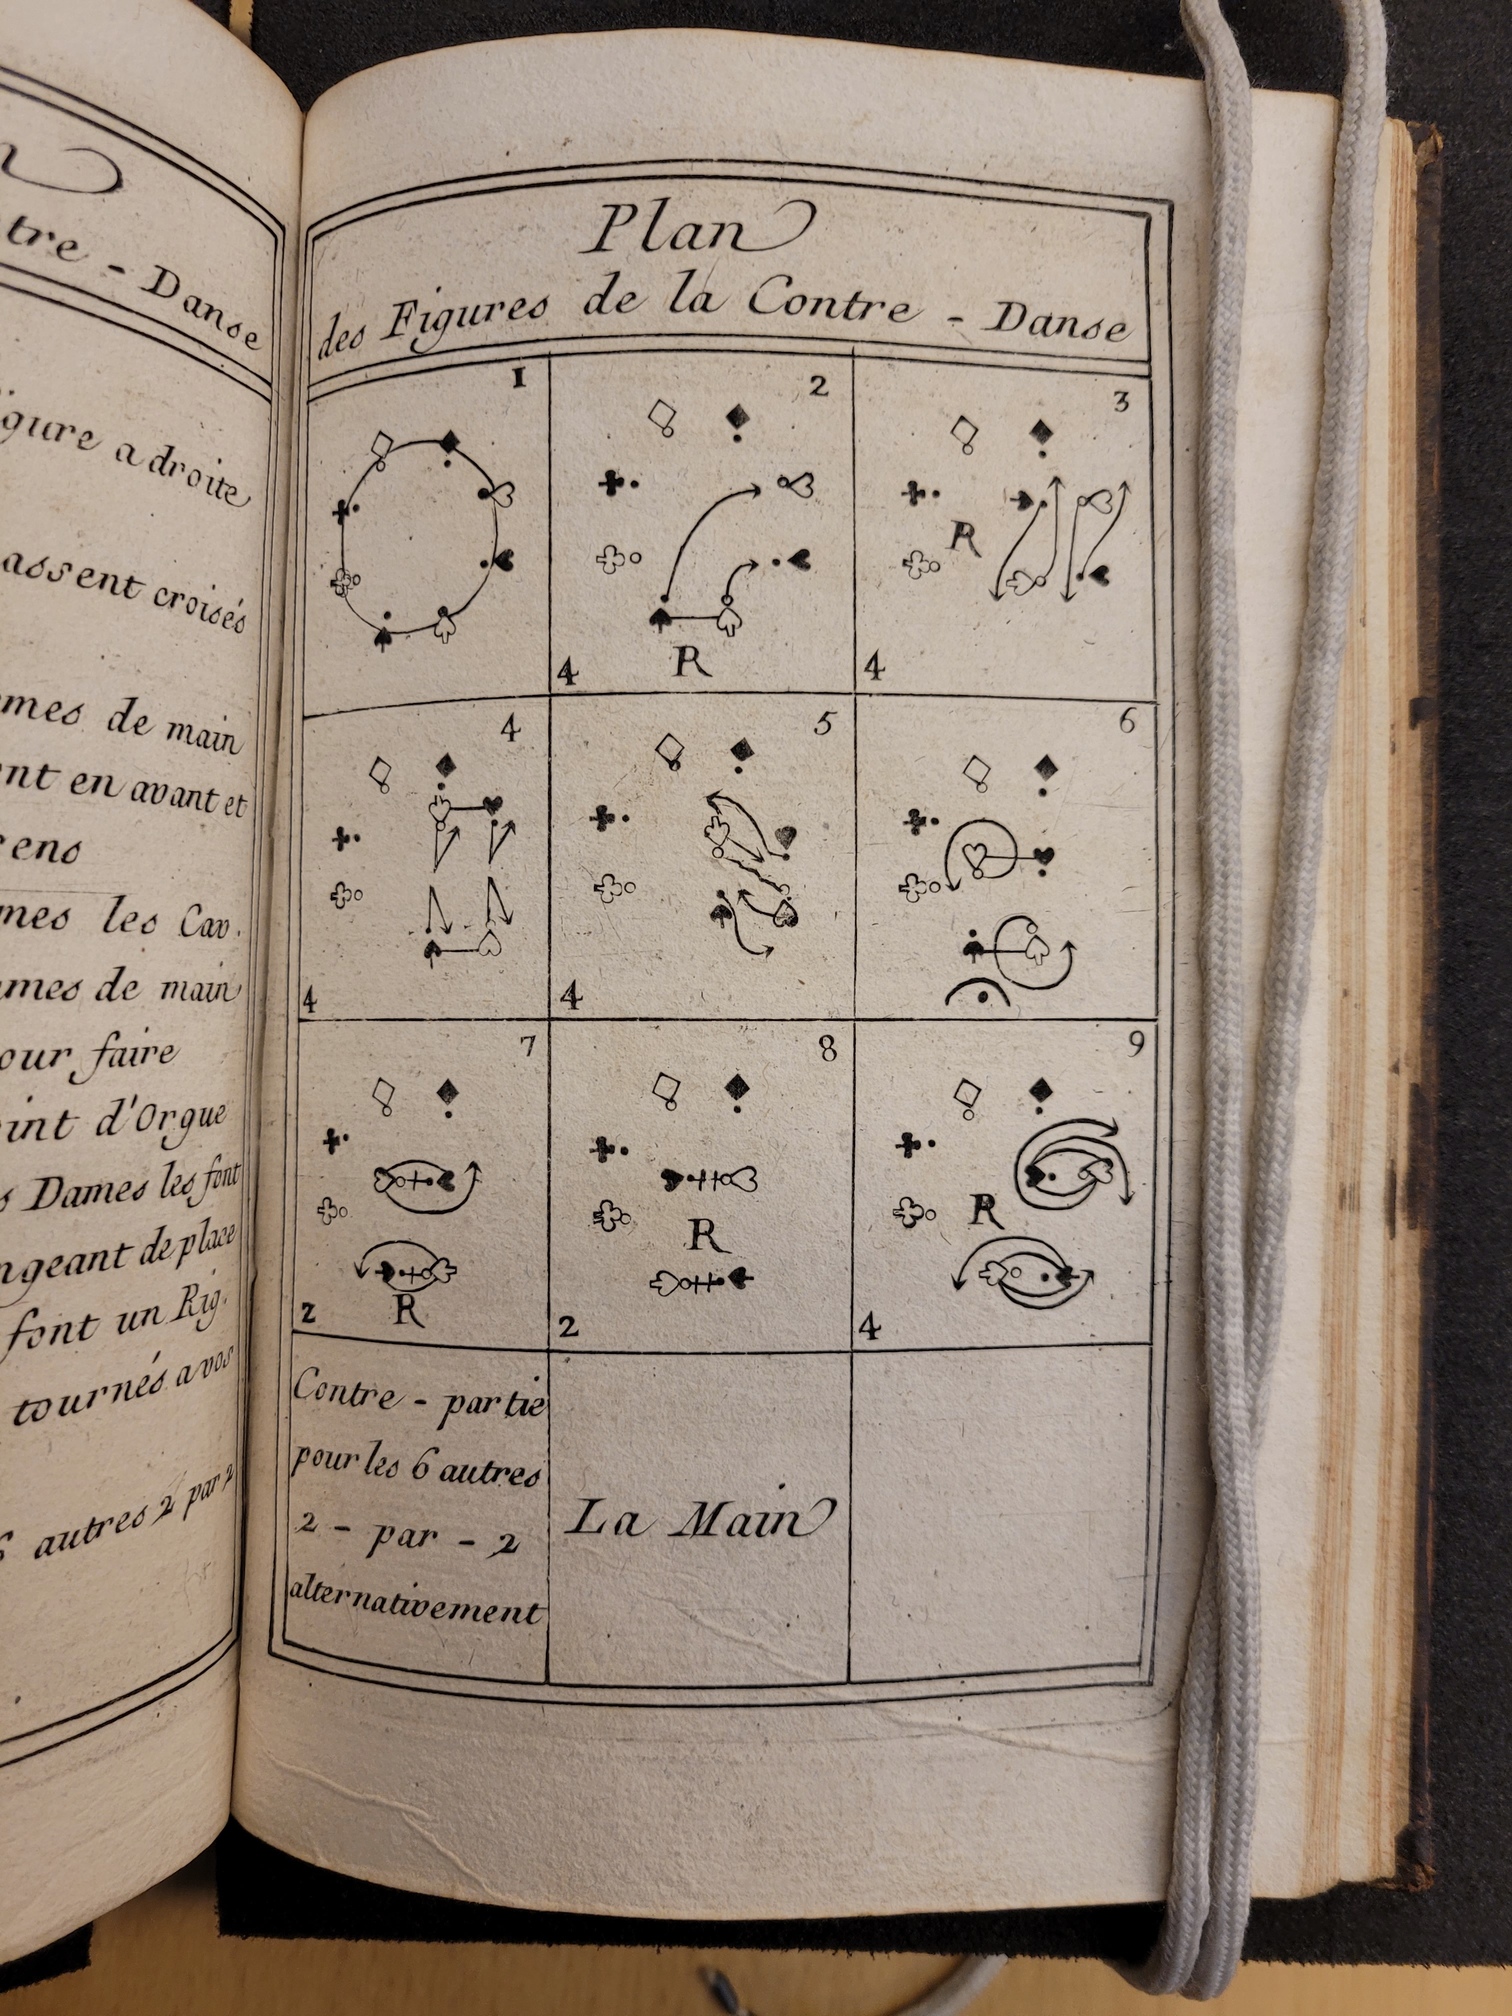 tre - Danse
igure a droite
assent croisés
mes de main
nt en avant et
rens
mes les Cav.
ames de main
our faire
oint d'Orgue
s Dames les font
ngeant de place
font un Rig.
tournés a vos
6 autres 2 par 2
Plan
des Figures de la Contre - Danse
1
2
4
R
3
R
4
4
4
5
4
6
7
2
R
8
R
2
9
R
4
Contre - partie
pour les 6 autres
2 - par - 2
alternativement
La Main